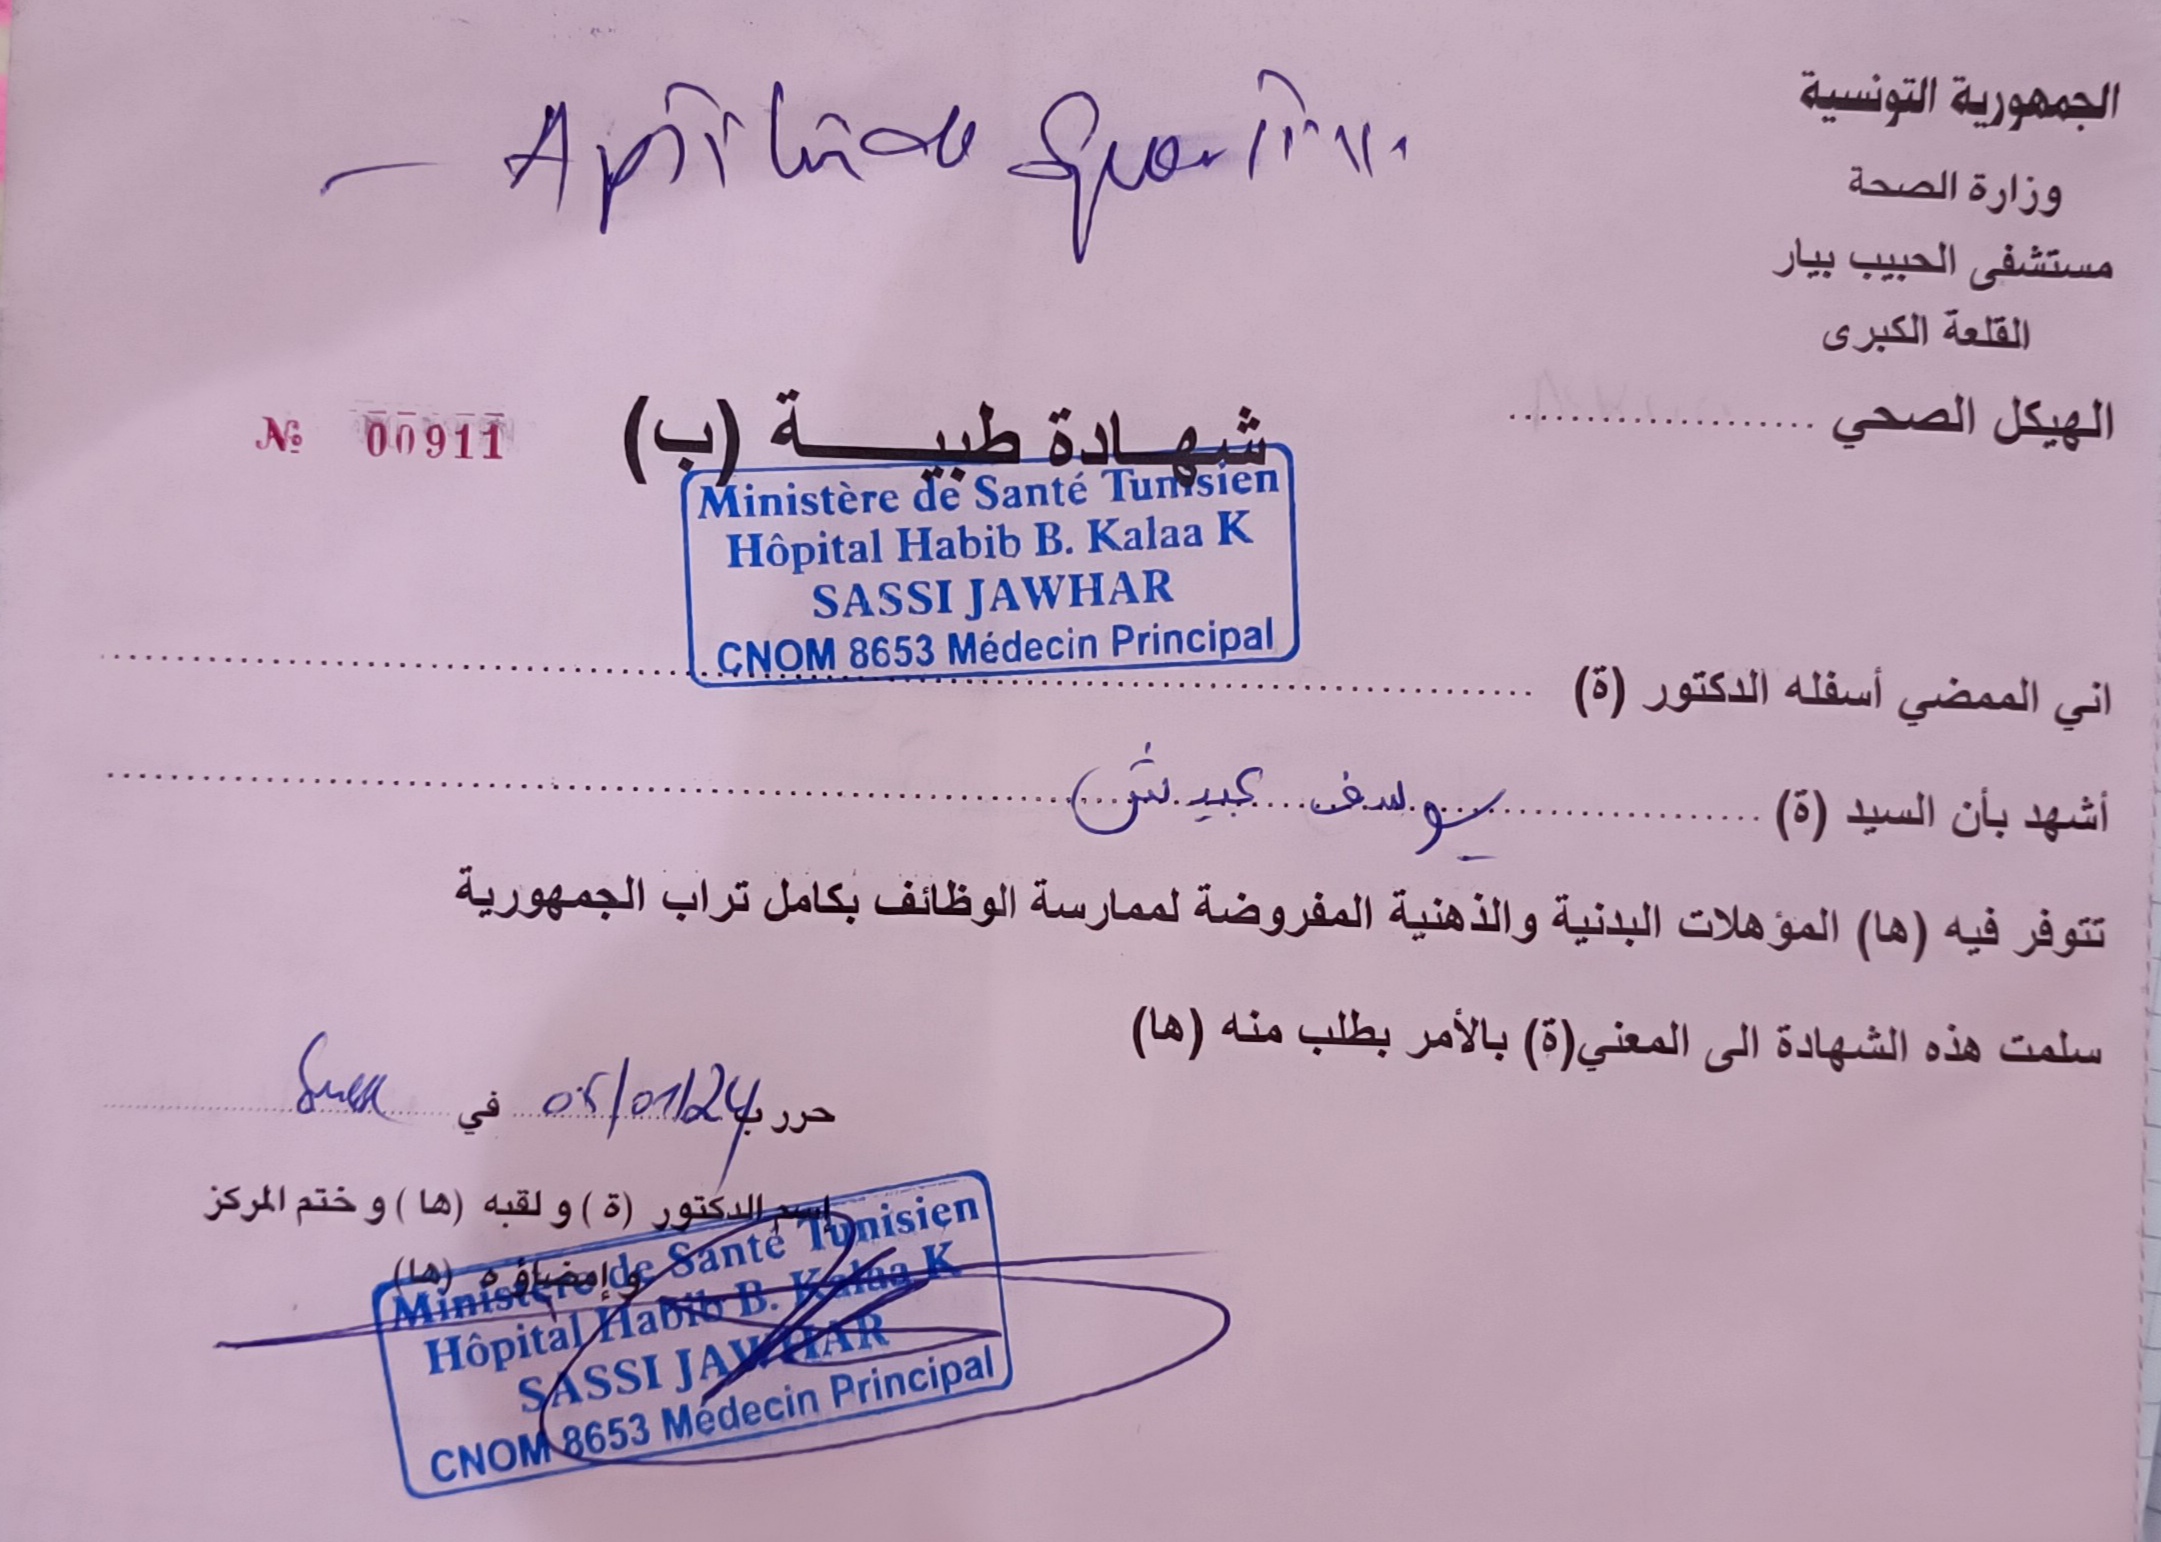 الجمهورية التونسية
وزارة الصحة
مستشفى الحبيب بيار
القلعة الكبرى
الهيكل الصحي ....................
— Aptitude
شهادة طبية (ب)
№ 00911
Ministère de Santé Tunisien
Hôpital Habib B. Kalaa K
SASSI JAWHAR
CNOM 8653 Médecin Principal
اني الممضي أسفله الدكتور (ة)
أشهد بأن السيد (ة) يوسف
تتوفر فيه (ها) المؤهلات البدنية والذهنية المفروضة لممارسة الوظائف بكامل تراب الجمهورية
سلمت هذه الشهادة الى المعني(ة) بالأمر بطلب منه (ها)
حرر ب 05/01/24 في
إسم الدكتور (ة) و لقبه (ها) و ختم المركز
و إمضاؤه (ها)
Ministère de Santé Tunisien
Hôpital Habib B. Kalaa K
SASSI JAWHAR
CNOM 8653 Médecin Principal